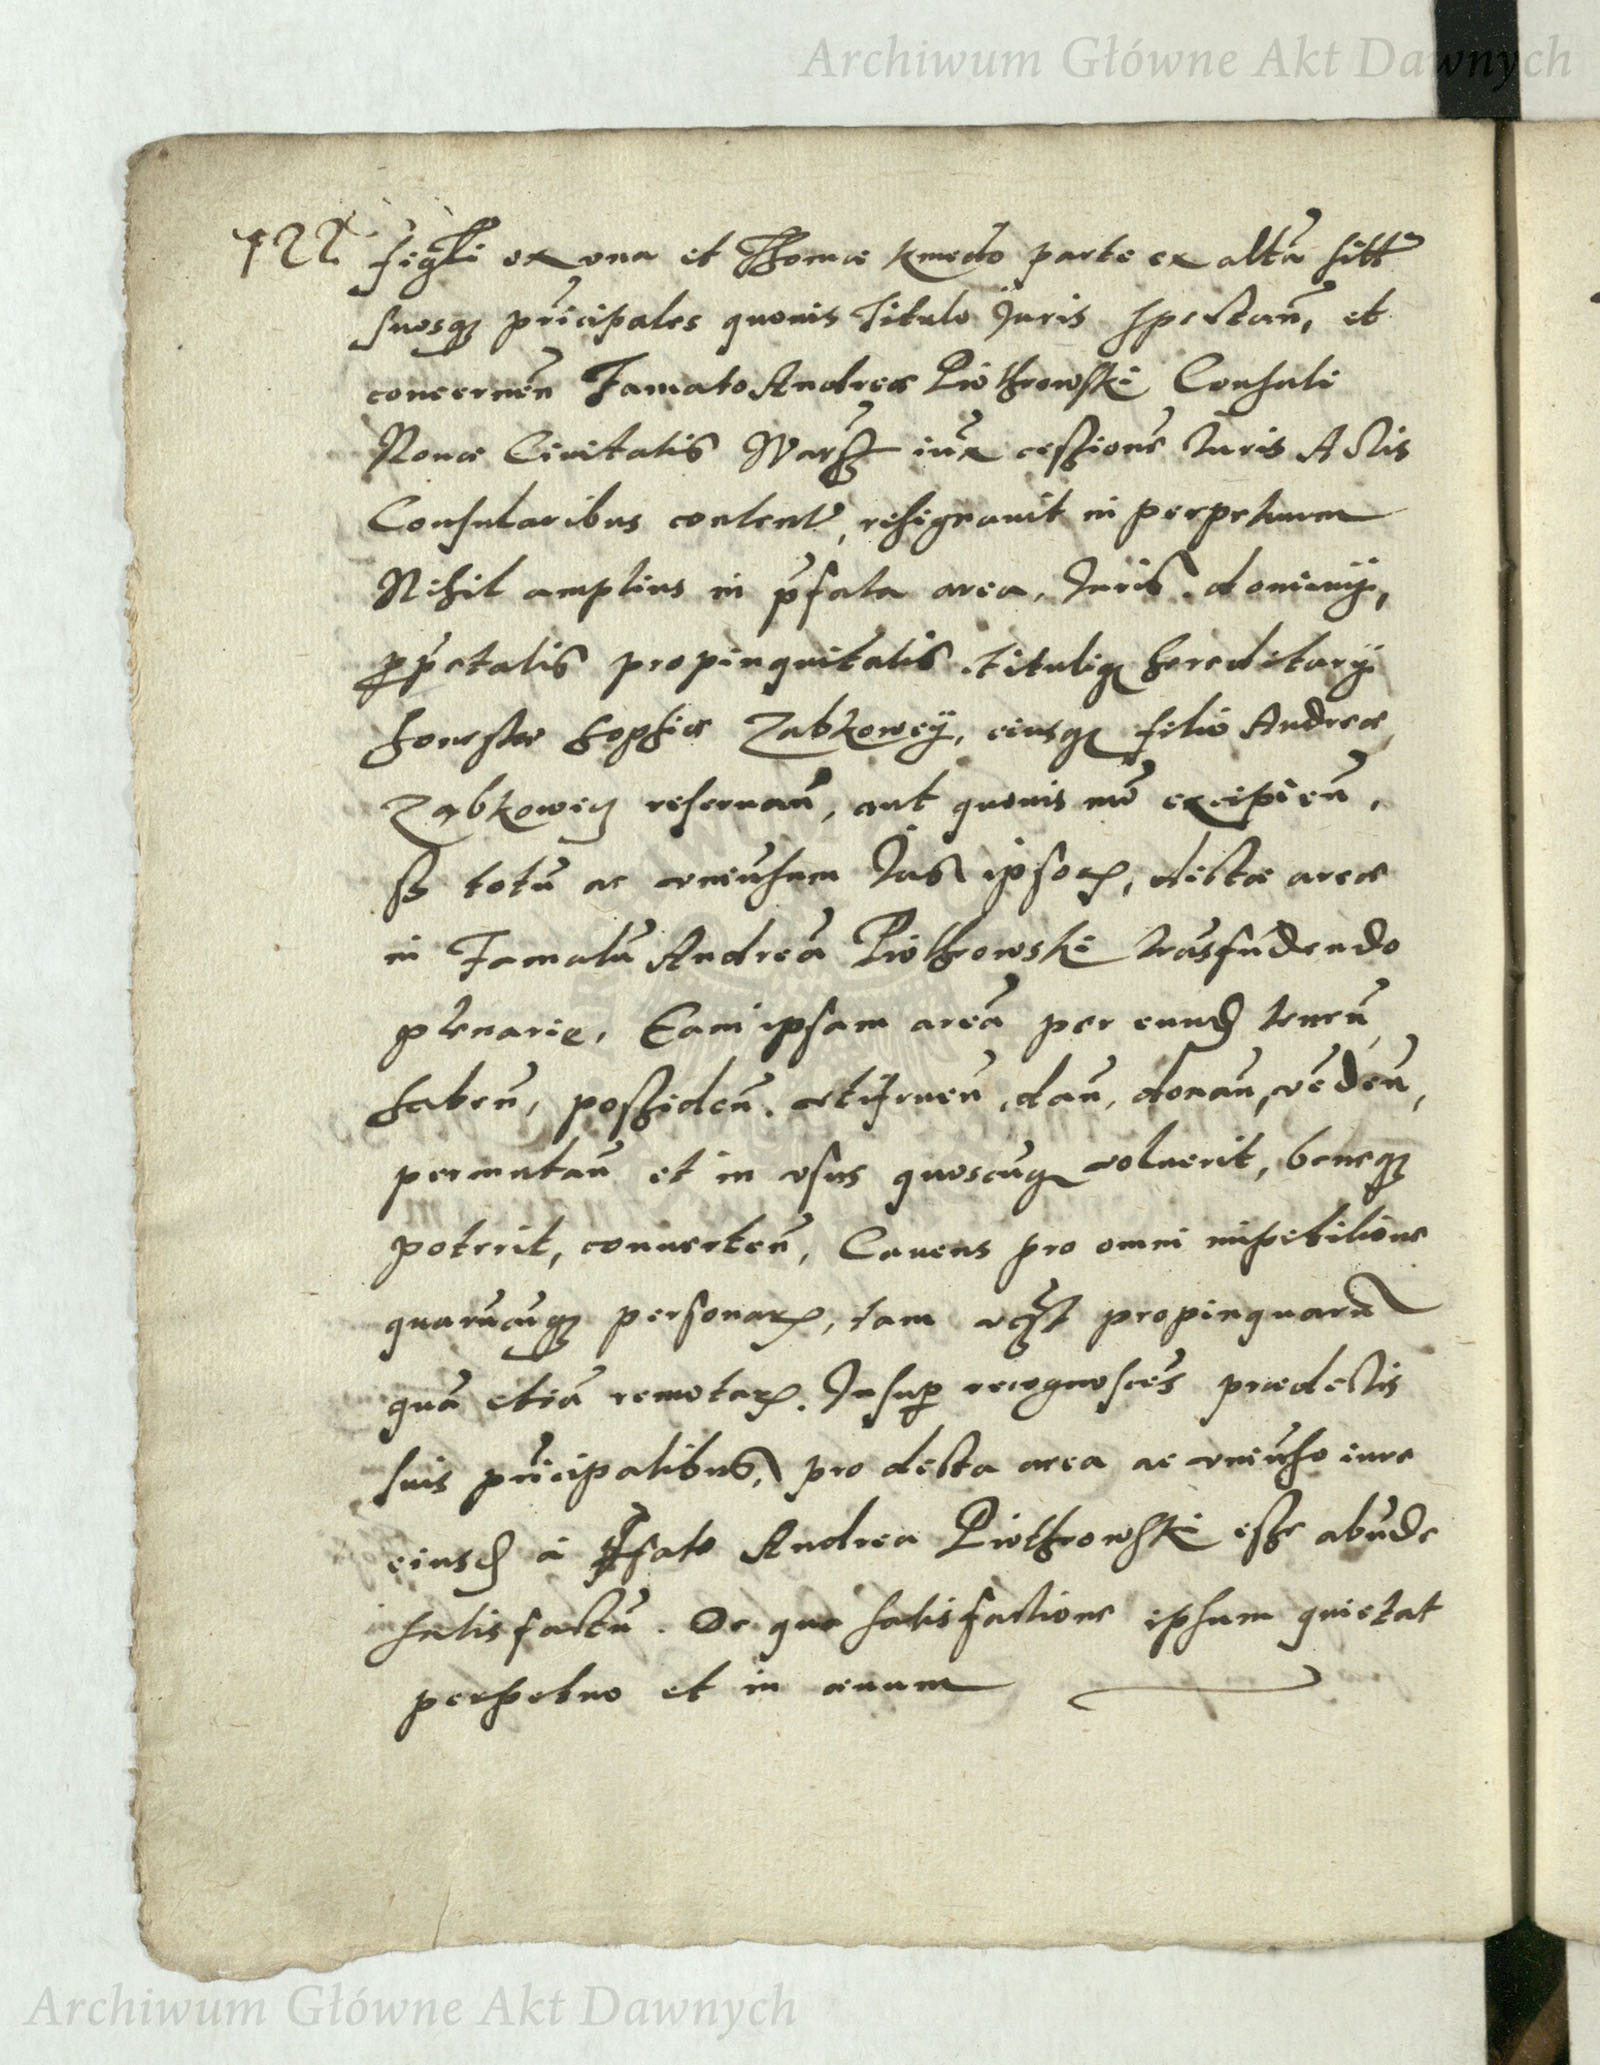 Archiwum Główne Akt Dawnych
figli ex una et Thomæ Kmedo parte ex altā sitt
suosq pricipales quovis Titulo Juris spectan, et
concernen Famato Andreæ Piothrowski Consuli
Novæ Civitatis Wars iux cessione Juris Actis
Consularibus content, resignavit in perpetuum
Nihil amplius in pfata area, Juris dominij,
propetatis propinquitatis Tituliq hereditarij
honestæ Sophiæ Zabkowey, eiusq filio Andreæ
Ząbkowicz reservan, aut quovis mō excipien,
sz totū ac univsum Jus ipsor, dictæ areæ
in Famatū Andreā Piothrowski trāsfūdendo
plenarie, Eam ipsam areā per eund tenen
haben, possiden, utifruen, dan, donan, vēden,
permutan et in usus quoscūq voluerit, beneq
poterit, converten, Cavens pro omni impetitione
quarūcuq personar, tam propinquarū
quā etiā remotar. Insup recognoscēs prædictis
suis pricipalibus, pro dicta area ac univso iure
eiusd à pfato Andrea Piothrowski esse abūde
satisfactū. De qua satisfactione ipsum quietat
perpetuo et in ævum
Archiwum Główne Akt Dawnych